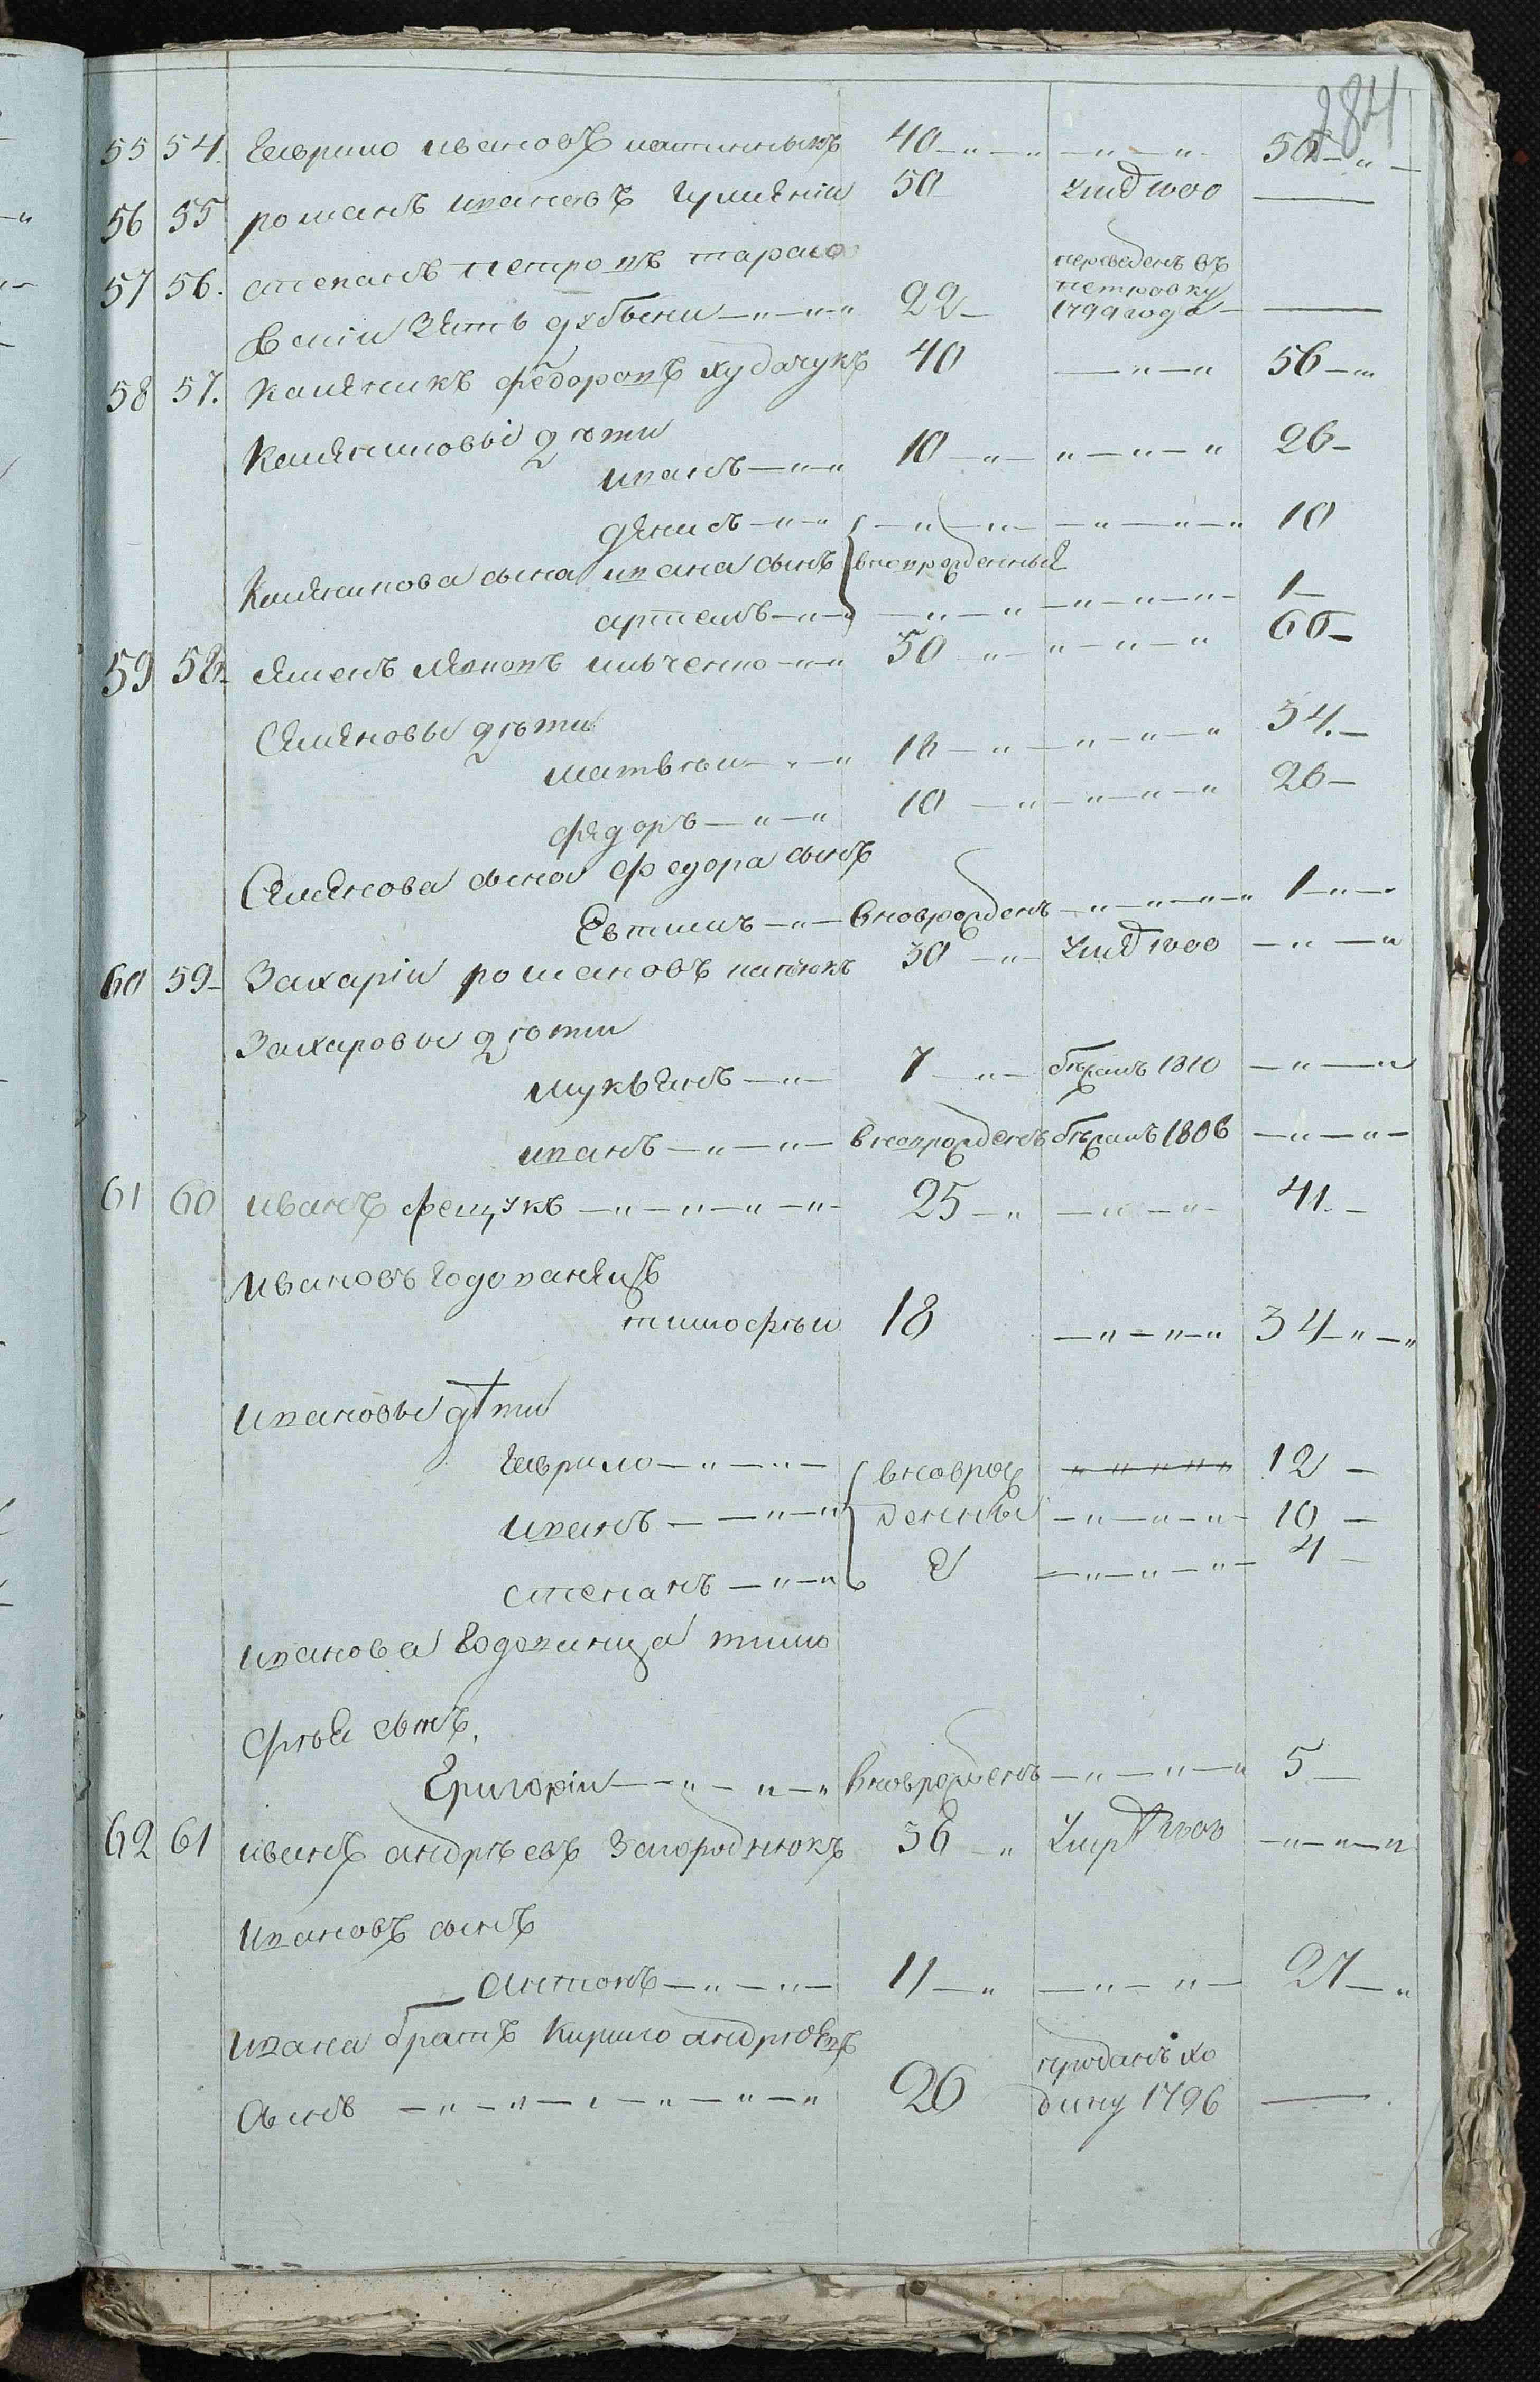 284
55 54. Гаврило ивановъ 40 — " — " — " — " 56 — "
56 55 романъ ивановъ 50 умѣ 1800 —
57 56. степанъ петровъ тарасо
переведенъ въ
петровку
зять 22 — 1799 года —
58 57. Калѣникъ федоровъ худачукъ 40 — " — " 56 — "
Калѣниковы дѣти
иванъ — " — " 10 — " — " — " — " 26 —
денисъ — " — " — " — " — " — " — " 10
Калѣникова сына ивана сынъ вновърожденные
артемъ — " — " — " — " — " — " — " 1 —
59 58. семенъ ильченко — " — " 50 — " — " — " — " 66 —
Семеновы дѣти
матвѣи — " — " 18 — " — " — " — " 34. —
федоръ — " — " 10 — " — " — " — " 26 —
Семенова сына федора сынъ
Евтимъ — " — вноврожденъ — " — " — " — " 1 — " —
60 59 — Захаріи романовъ 30 — " — умѣ 1800 — " — "
Захаровы дѣти
лукьянъ — " — 7 — " — бѣжалъ 1810 — " — "
иванъ — " — " — вноврожденъ бѣжалъ 1806 — " — " —
61 60 иванъ фещукъ — " — " — " — " — 25 — " — " — " — 41. —
Ивановъ годованецъ
тимофѣи 18 — " — " — " 34 — " — "
ивановы дѣти
Гаврило — " — " — вноврож " " " " " 12 —
иванъ — " — " денны — " — " — " — 10 —
степанъ — " — " е — " — " — " — 4 —
иванова годованца тимо
фѣя сынъ
Григоріи — " — " — " вноврожденъ — " — " — " 5 —
62 61 иванъ андрѣевъ Загороднюкъ 36 — " умр 1800 — " — " — "
ивановъ сынъ
антонъ — " — " — 11 — " — " — " — 27 — "
ивана братъ Кирило андрѣевъ
проданъ хо
сынъ — " — " — " — " — " — " 26 дину 1796 —